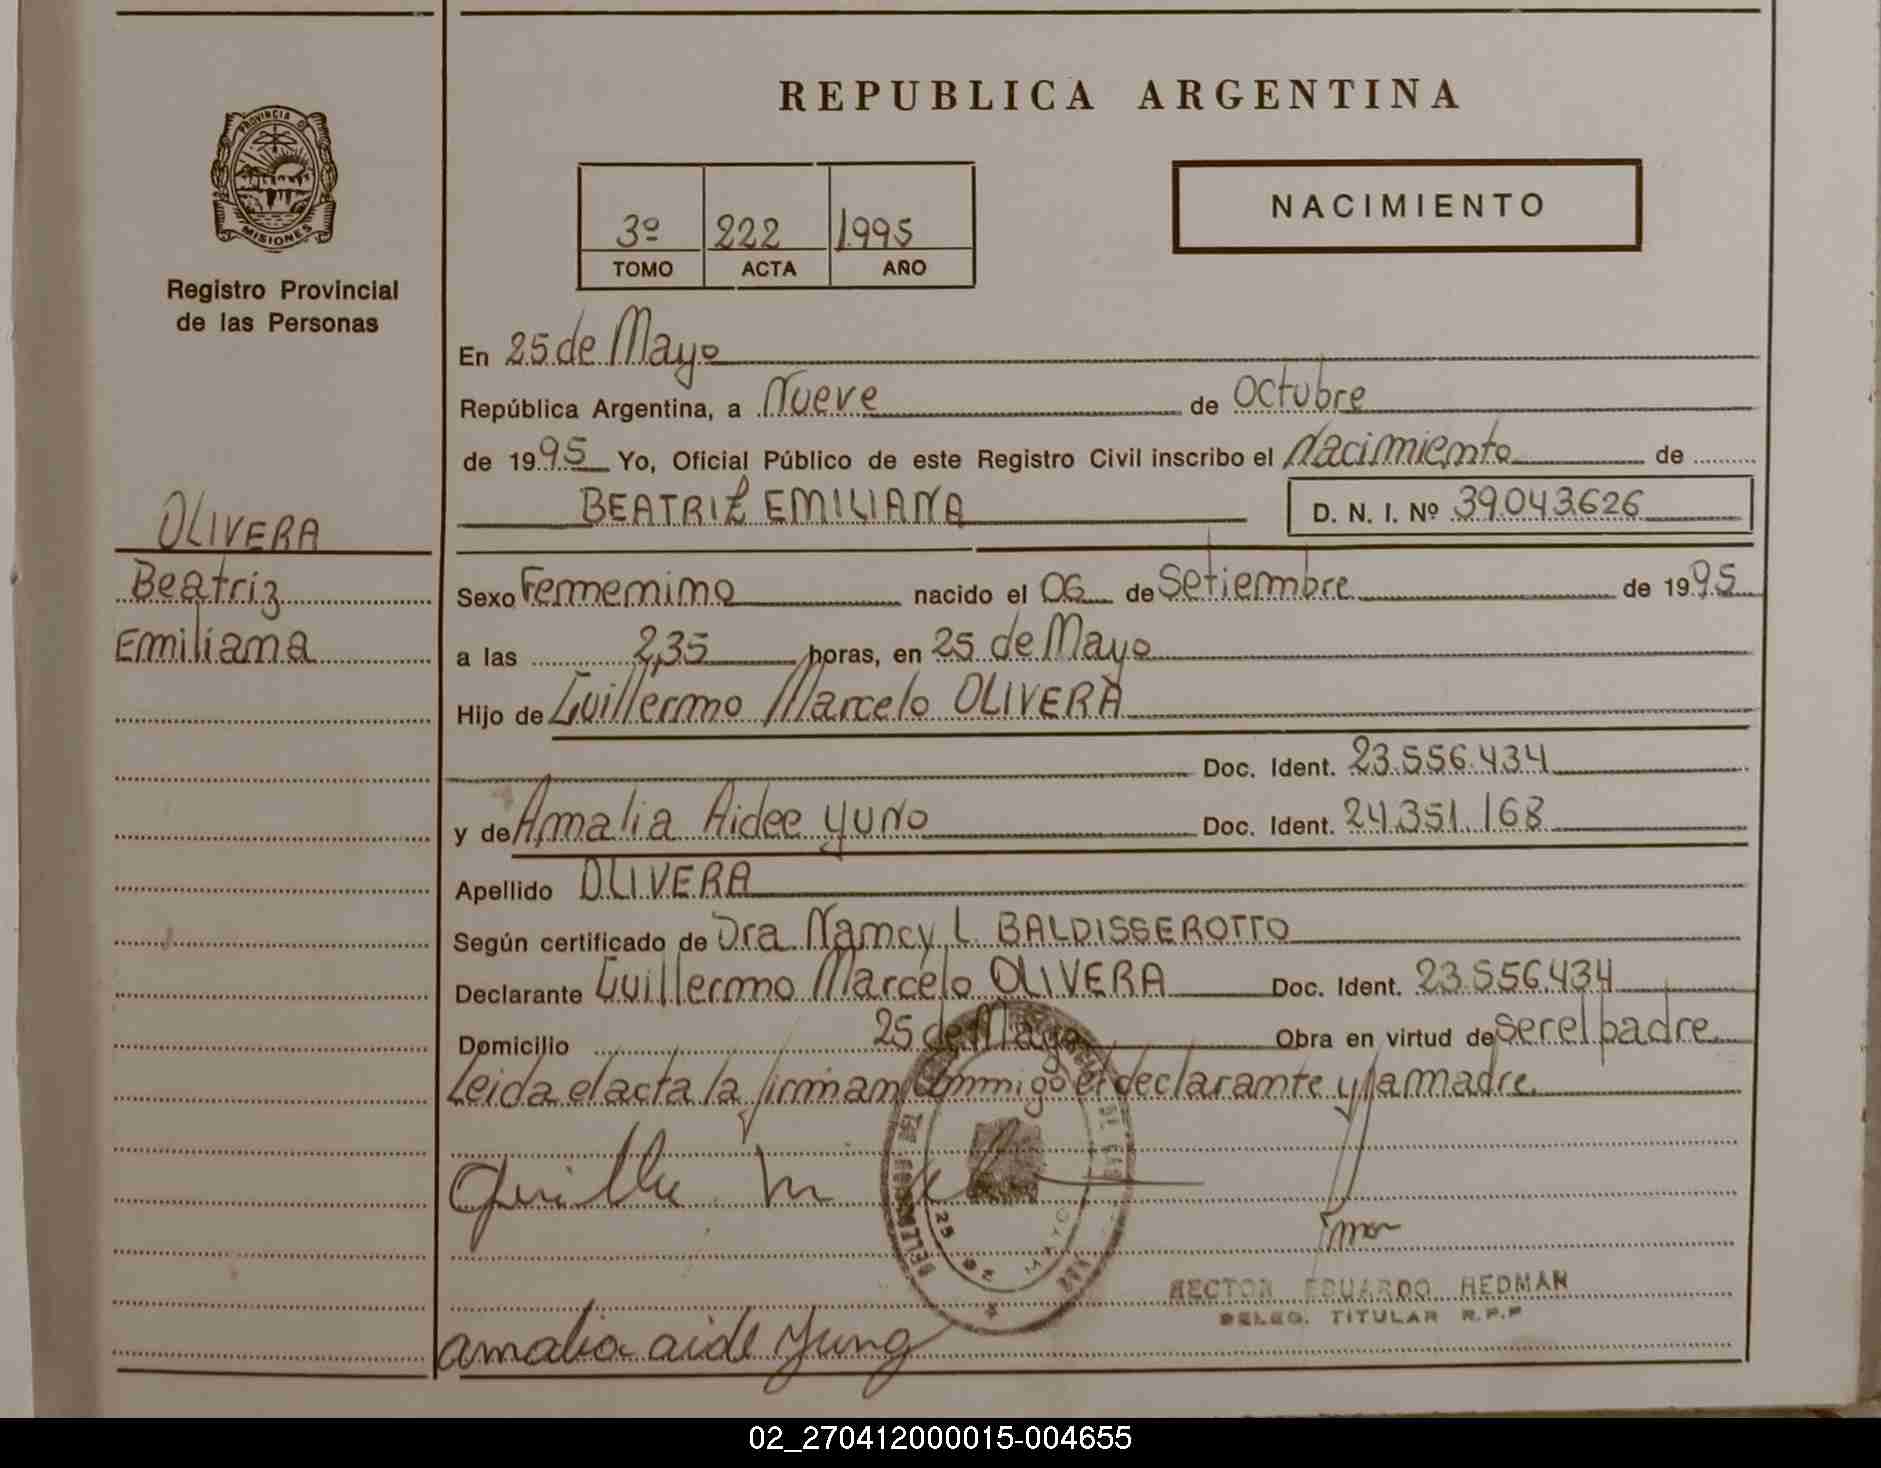 REPUBLICA ARGENTINA
PROVINCIA D
MISIONES
Registro Provincial
de las Personas
3º 222 1995
TOMO ACTA AÑO
NACIMIENTO
En 25 de Mayo
República Argentina, a Nueve de Octubre
de 1995 Yo, Oficial Público de este Registro Civil inscribo el Nacimiento de
BEATRIZ EMILIANA D. N. I. Nº 39.043.626
OLIVERA
Beatriz
Emiliana
Sexo Femenino nacido el 06 de Setiembre de 1995
a las 2,35 horas, en 25 de Mayo
Hijo de Guillermo Marcelo OLIVERA
Doc. Ident. 23.556.434
y de Amalia Aidee YUNO Doc. Ident. 24.351.168
Apellido OLIVERA
Según certificado de Dra Nancy L. BALDISSEROTTO
Declarante Guillermo Marcelo OLIVERA Doc. Ident. 23.556.434
Domicilio 25 de Mayo Obra en virtud de ser el padre
Leida el acta la firman conmigo el declarante y la madre
25 DE MAYO
HECTOR EDUARDO HEDMAN
DELEG. TITULAR R.P.P
amalia aide Yung
02_270412000015-004655